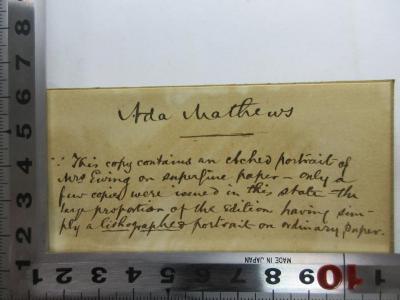 Ada Mathews
∵ This copy contains an etched portrait of
Mrs Ewing on superfine paper – only a
few copies were issued in this state – the
large proportion of the edition having sim-
ply a lithographed portrait on ordinary paper.
MADE IN JAPAN
1 2 3 4 5 6 7 8 9 10
1 2 3 4 5 6 7 8 9 10